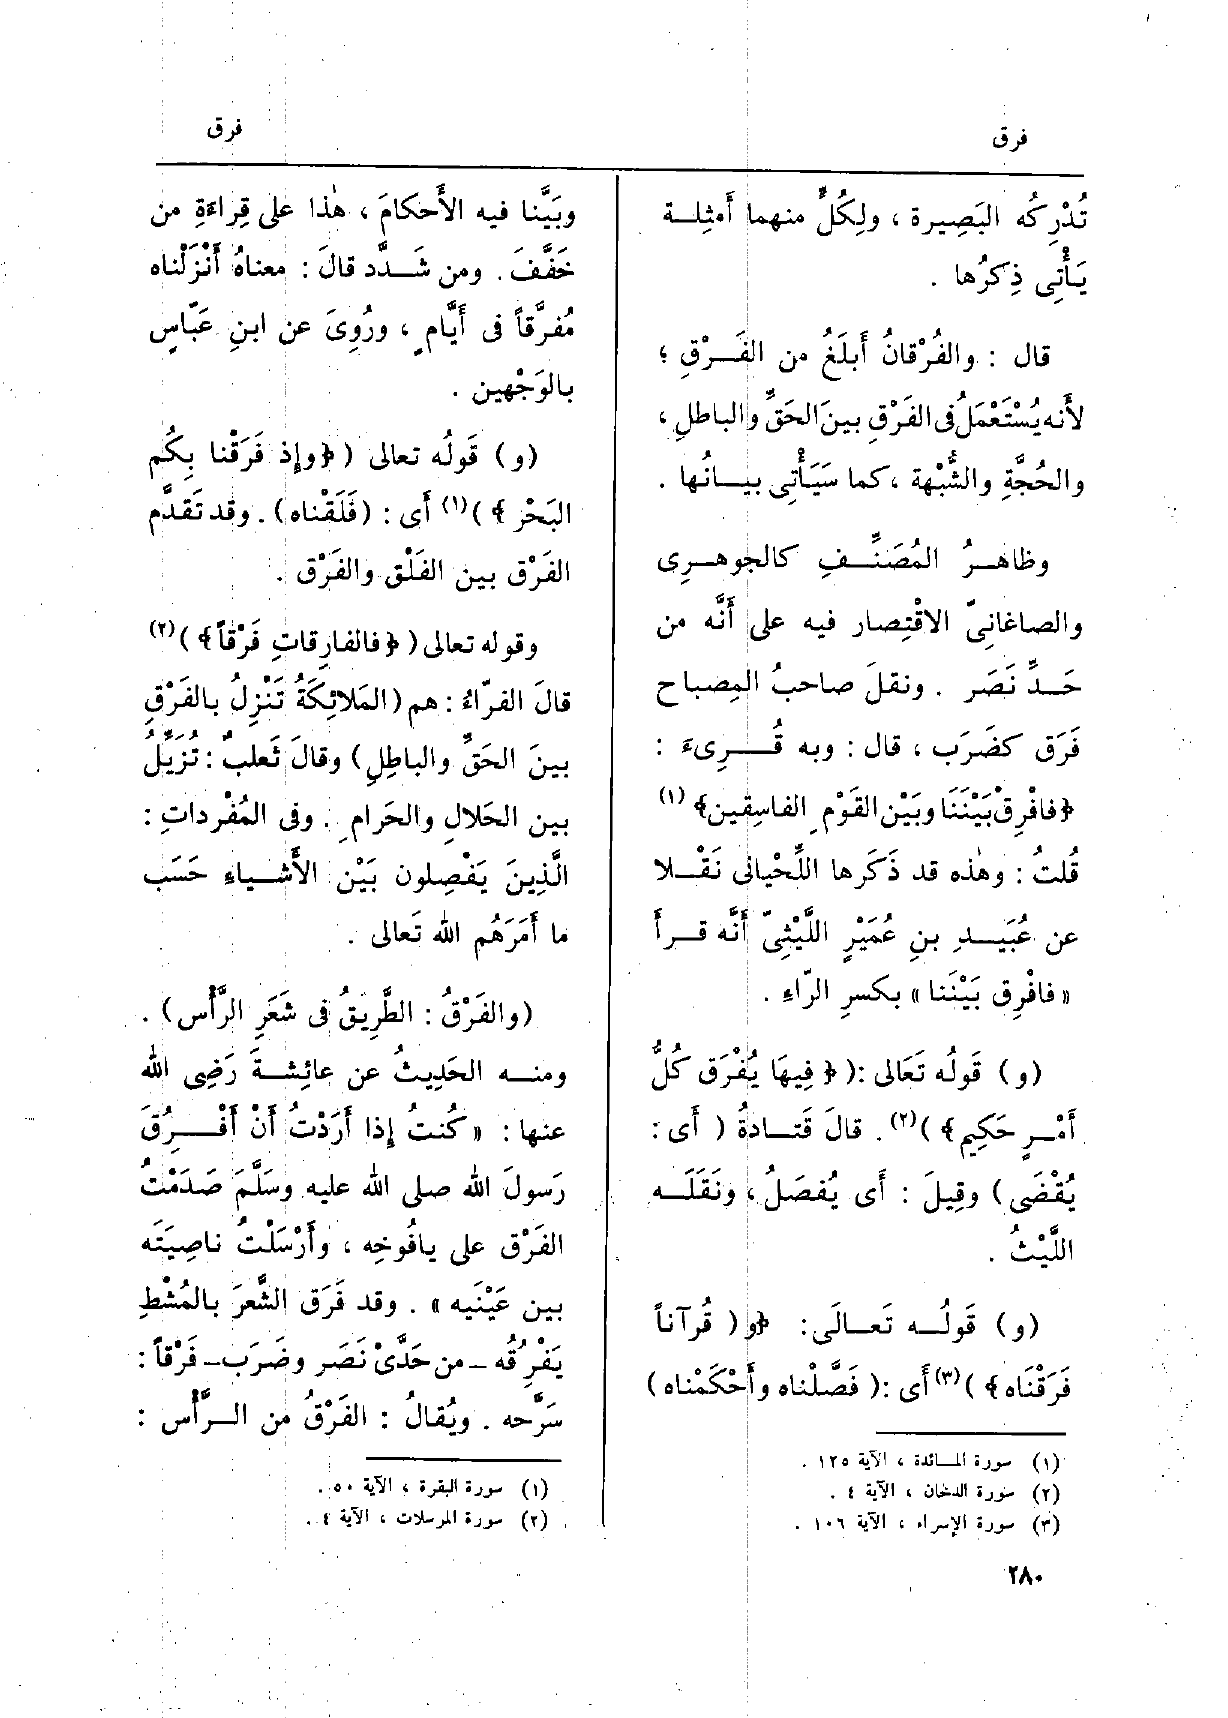 فرق
فرق
تُدْرِكُه البَصِيرة ، ولِكُلٍّ منهما أَمثِلـــة
يَأْتِى ذِكرُها .
قال : والفُرْقانُ أَبلَغُ من الفَـــرْقِ ؛
لأَنه يُسْتَعْمَلُ فى الفَرْقِ بينَ الحَقِّ والباطلِ ،
والحُجَّةِ والشُّبْهة ، كما سَيَأْتِى بيـــانُها .
وظاهـــرُ المُصَنِّـــفِ كالجوهـــرِى
والصاغانىّ الاقْتِصار فيه على أَنَّه من
حَـــدِّ نَصَر . ونقلَ صاحبُ المِصباح
فَرَق كضَرَب ، قال : وبه قُـــرِىءَ :
﴿فافْرِقْ بَيْنَنَا وبَيْن القَوْمِ الفاسِقِين﴾ (١)
قُلتُ : وهٰذه قد ذَكَرها اللِّحْيانى نَقْـــلا
عن عُبَيـــدِ بنِ عُمَيْرٍ اللَّيْثِىّ أَنَّه قـــرأَ
« فافْرِق بَيْنَنا » بكسرِ الرّاءِ .
(و) قَولُه تَعَالى :( ﴿ فِيهَا يُفْرَق كُلُّ
أَمْـــرٍ حَكِيمٍ﴾ )(٢). قالَ قَتـــادةُ ( أَى :
يُقْضَى) وقِيلَ : أَى يُفصَلُ ، ونَقَلَـــه
اللَّيْثُ .
(و) قَولُـــه تَعَـــالَى: ﴿و( قُرآناً
فَرَقْنَاه ﴾ )(٣) أَى :( فَصَّلْناه وأَحْكَمْناه )
(١) سورة المـــائدة ، الآية ١٢٥ .
(٢) سورة الدخان ، الآية ٤ .
(٣) سورة الإسراء ، الآية ١٠٦ .
وبَيَّنا فيه الأَحكامَ ، هٰذا على قِراءَةِ من
خَفَّفَ . ومن شَـــدَّد قالَ : معناهُ أَنْزَلْناه
مُفرَّقاً فى أَيَّامٍ ، ورُوِىَ عن ابنِ عَبّاسٍ
بالوَجْهين .
(و) قَولُه تعالى ( ﴿وإِذ فَرَقْنا بِكُم
البَحْر ﴾ )(١) أَى : (فَلَقْناه) . وقد تَقدَّم
الفَرْق بين الفَلْق والفَرْق .
وقوله تعالى ( ﴿ فالفارِقاتِ فَرْقاً﴾ )(٢)
قالَ الفرّاءُ : هم (المَلائكَةُ تَنْزِلُ بالفَرْقِ
بينَ الحَقِّ والباطِلِ) وقالَ ثَعلبٌ : تُزَيِّلُ
بين الحَلالِ والحَرامِ . وفى المُفْرداتِ :
الَّذِينَ يَفْصِلون بَيْن الأَشيـــاءِ حَسَب
ما أَمَرَهُم الله تَعالى .
(والفَرْقُ : الطَّرِيقُ فى شَعَرِ الرَّأْس) .
ومنـــه الحَدِيثُ عن عائِشـــةَ رَضِى الله
عنها : « كُنتُ إِذا أَرَدْتُ أَنْ أَفْـــرُقَ
رَسولَ الله صلى الله عليه وسَلَّمَ صَدَمْتُ
الفَرْق على يافُوخِه ، وأَرْسَلْتُ ناصِيَتَه
بين عَيْنَيه » . وقد فَرَق الشَّعرَ بالمُشْطِ
يَفْرِقُه – من حَدَّىْ نَصَر وضَرَب – فَرْقاً :
سَرَّحه . ويُقالُ : الفَرْقُ من الـــرَّأْس :
(١) سورة البقرة ، الآية ٥٠ .
(٢) سورة المرسلات ، الآية ٤ .
٢٨٠